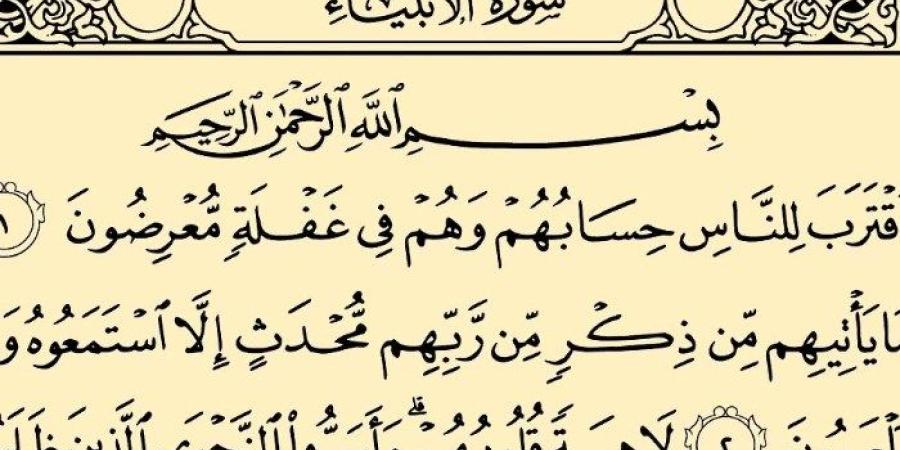 سورة الأنبياء
بِسْمِ ٱللَّهِ ٱلرَّحْمَٰنِ ٱلرَّحِيمِ
ٱقْتَرَبَ لِلنَّاسِ حِسَابُهُمْ وَهُمْ فِى غَفْلَةٍ مُّعْرِضُونَ ١
مَا يَأْتِيهِم مِّن ذِكْرٍ مِّن رَّبِّهِم مُّحْدَثٍ إِلَّا ٱسْتَمَعُوهُ وَ
٢ لَاهِيَةً قُلُوبُهُمْ ۗ وَأَسَرُّوا۟ ٱلنَّجْوَى ٱلَّذِينَ